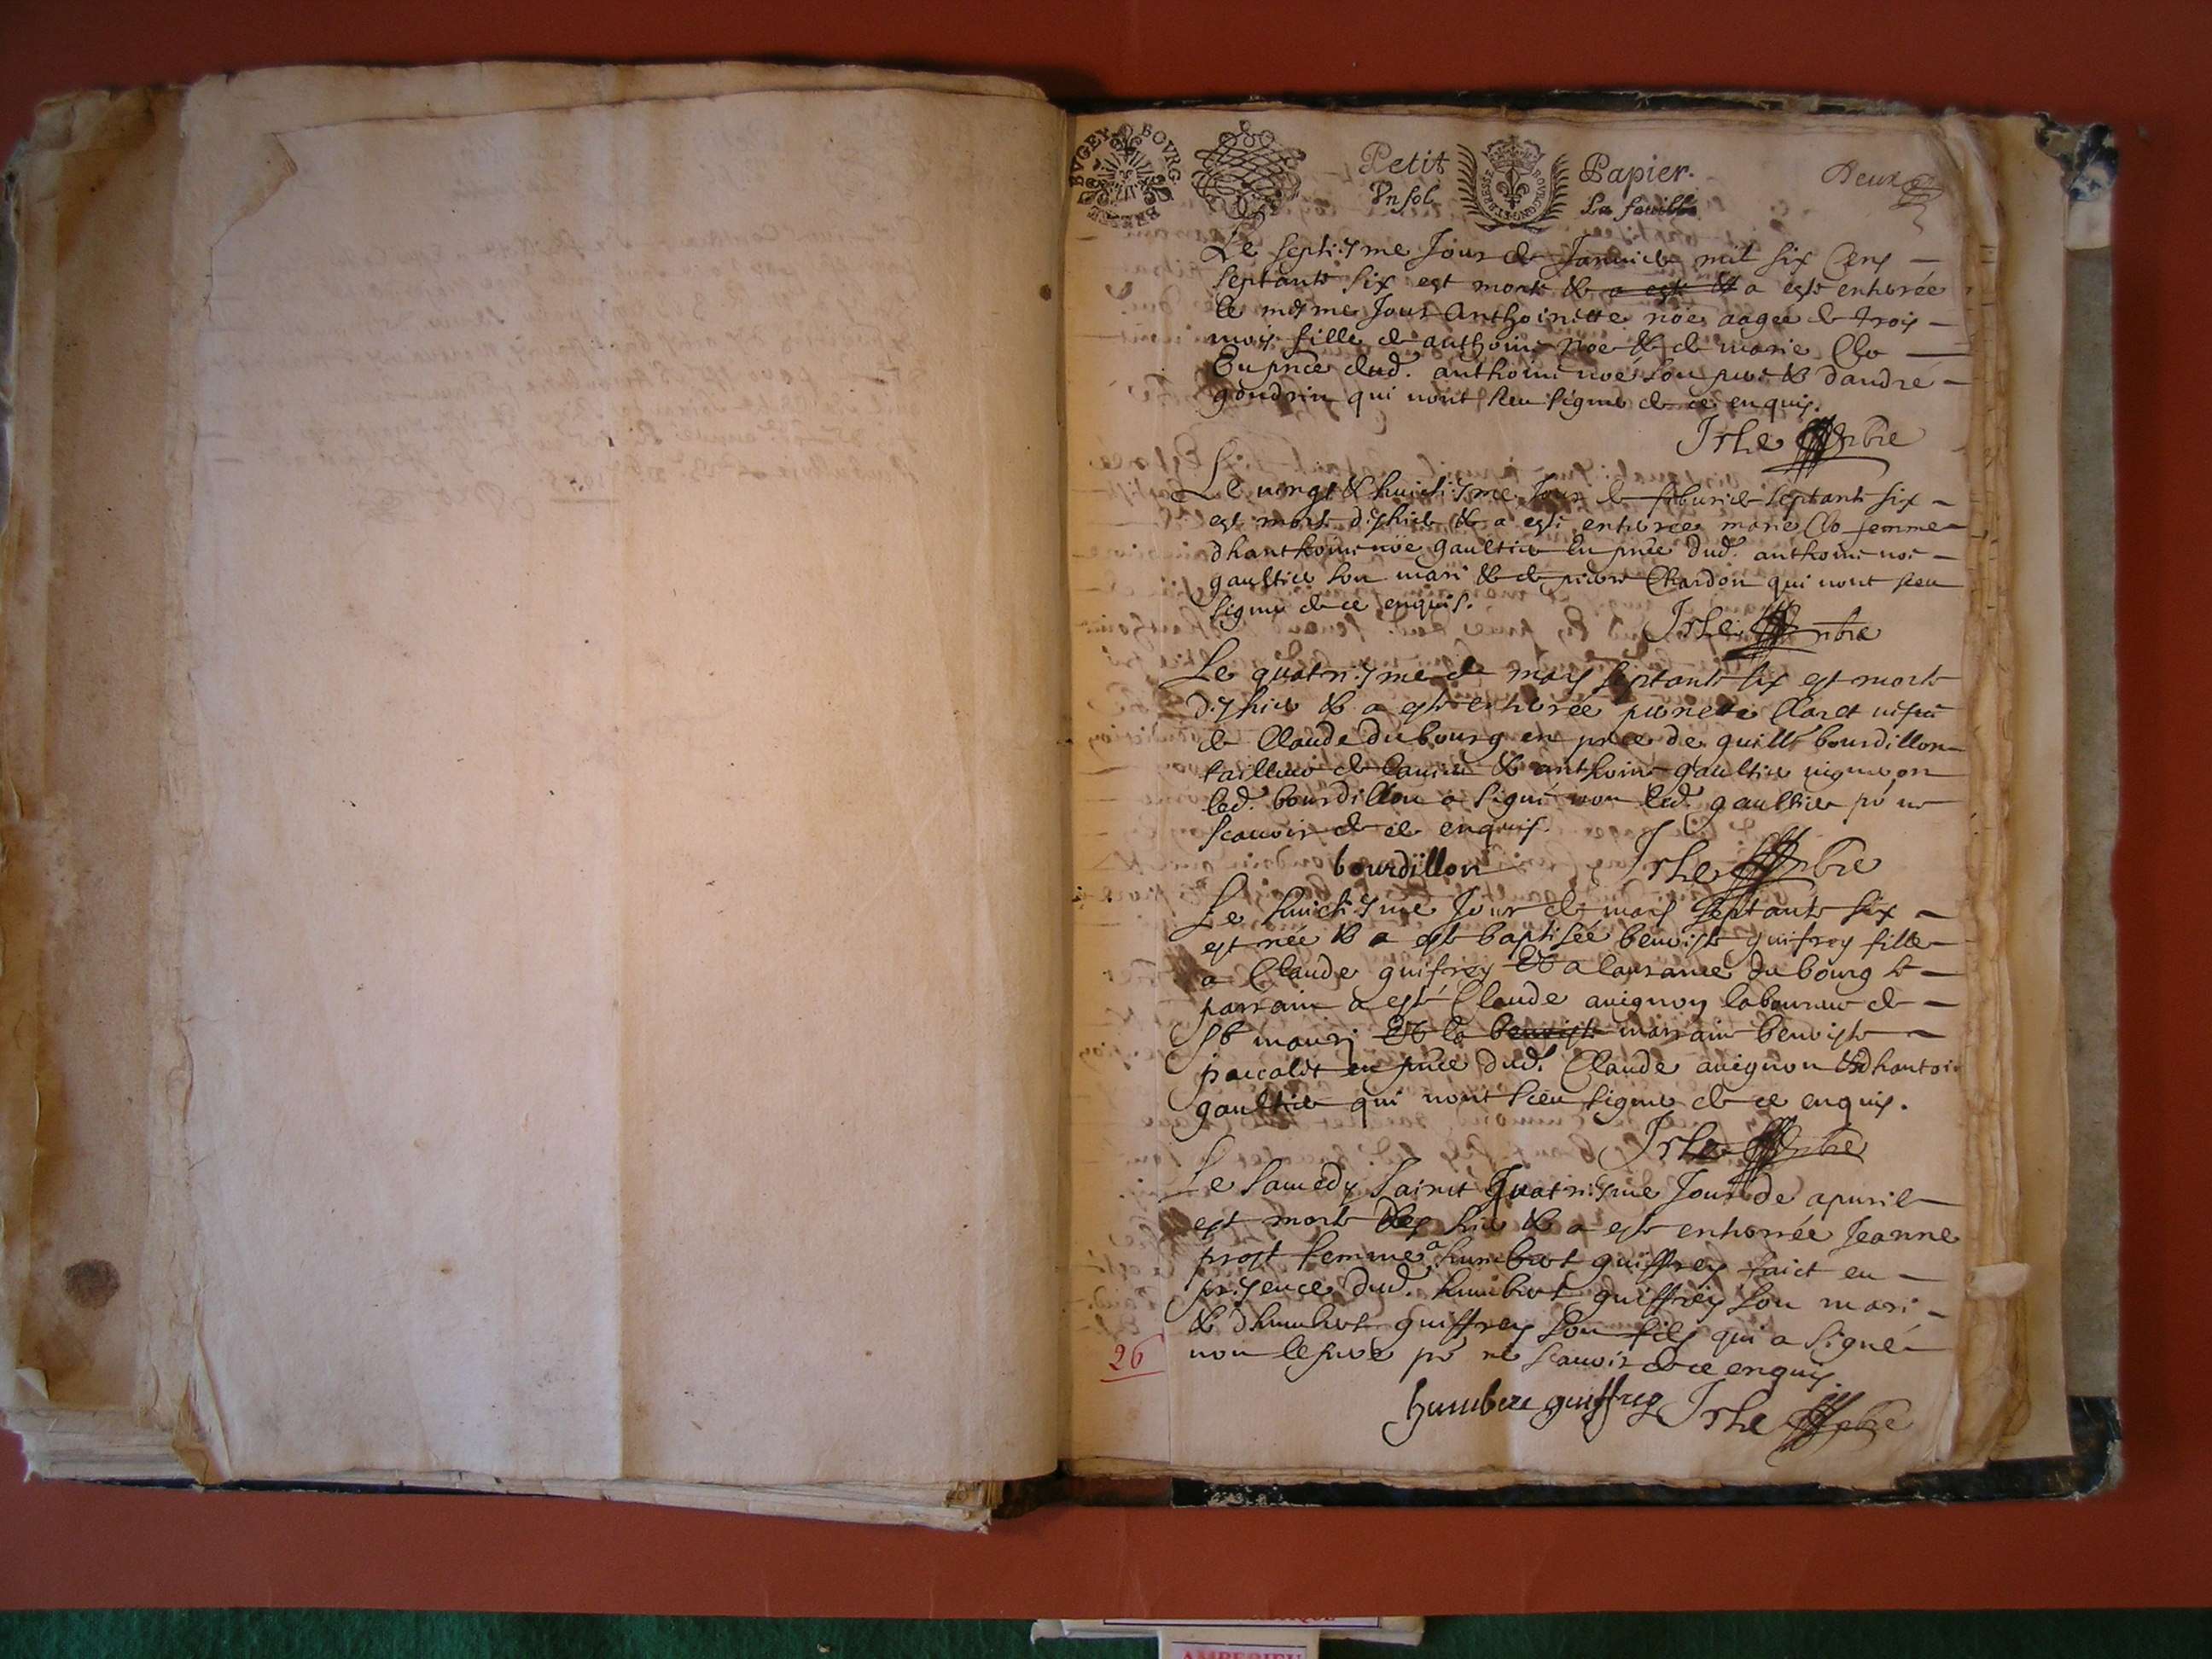 BVGEY BOVRG BRESSE
Petit Papier.
Vn sol La feuille
BOVRGONG·ET·BRESSE
Deux
Le septiesme Jour de Januier mil six Cens
septante six est morte & a esté & a esté enterée
le mesme Jour Anthoinette noë aagée de trois
mois fille de anthoine noë & de marie Clo
En pnce dud. anthoine noë son pere & dandré
gondrin qui nont sceu signer de ce enquis.
Le vingt & huictiesme Jour de feburier septante six
est morte dẏhier & a esté enterée marie Clo femme
dhanthoine noë gaultier En pnce dud. anthoine noë
gaultier son mari & de pierre Chardon qui nont sceu
signer de ce enquis.
Le quatriesme de mars septante six est morte
dẏhier & a esté enterée pernette Claret
de Claude dubourg en pnce de guille bourdillon
tailleur de & anthoine gaultier vigneron
led. bourdillon a signé non led. gaultier po ne
scauoir de ce enquis.
bourdillon
Le huictiesme Jour de mars septante six
est née & a esté baptisée benoiste guifrey fille
a Claude guifrey & a laurance du bourg le
parrain a esté Claude auignon laboureur de
St mauri & la benoiste marraine benoiste
en pnce dud. Claude auignon & dhantoi
gaultier qui nont sceu signer de ce enquis.
Le Samedy Sainct quatriesme Jour de apuril
est morte des hier & a esté enterrée Jeanne
prost femme a humbert guiffrey faict en
presence dud. humbert guiffrey son mari
& dhumbert guiffrey son fils qui a signé
non le pere po ne scauoir de ce enquis.
26
humbert guiffrey